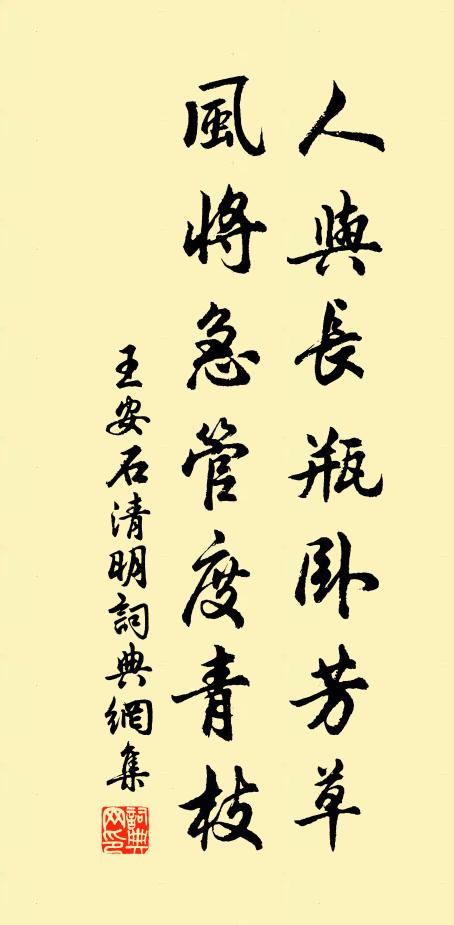 人與長瓶卧芳草
風將急管度青枝
王安石清明詞典網集
詞典
网印